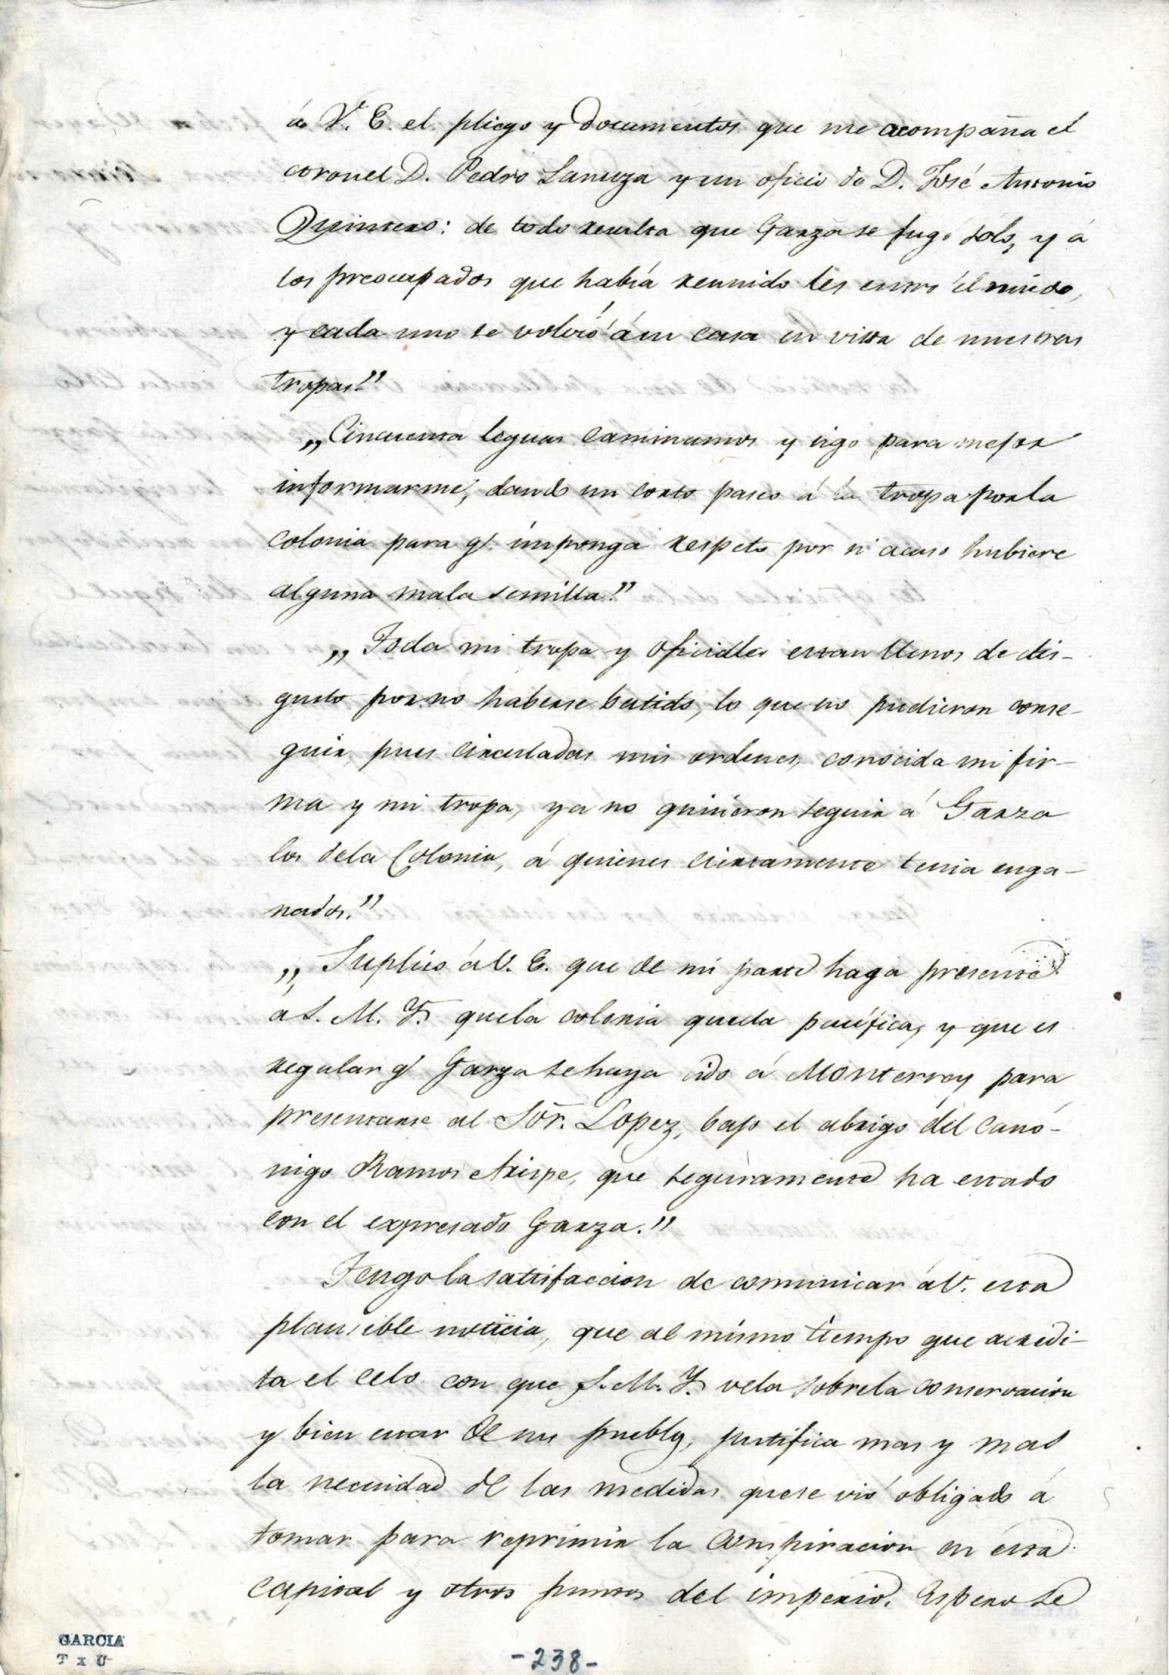 á V. E. el pliego y documentos que me acompaña el
coronel D. Pedro Lanuza y un oficio de D. José Antonio
Quintero: de todo resulta que Garza se fugo solo, y á
los preocupados que había reunido les entró el miedo,
y cada uno se volvió á su casa en vista de nuestras
tropas."
„Cincuenta leguas caminamos y sigo para mejor
informarme, dando un corto paseo á la tropa por la
colonia para q.e imponga respeto por si acaso hubiere
alguna mala semilla."
„Toda mi tropa y oficiales estan llenos de dis-
gusto por no haberse batido, lo que no pudieron conse-
guir, pues circuladas mis ordenes, conocida mi fir-
ma y mi tropa, ya no quisieron seguir á Garza
los dela Colonia, á quienes ciertamente tenia enga-
nados."
„Suplico á V. E. que de mi parte haga presente
a S. M. Y. que la colonia queda pacífica, y que es
regular q.e Garza se haya ido á Monterrey para
presentarse al Sõr. Lopez, bajo el abrigo del Canó-
nigo Ramos Arispe, que seguramente ha estado
con el expresado Garza."
Tengo la satisfaccion de comunicar á V. esta
plausible noticia, que al mismo tiempo que acredi-
ta el celo con que S. M. Y. vela sobre la conservacion
y bien estar de sus pueblos, justifica mas y mas
la necesidad de las medidas que se vió obligado á
tomar para reprimir la conspiracion en esta
capital y otros puntos del imperio. Espero se
GARCIA
T x U
-238-